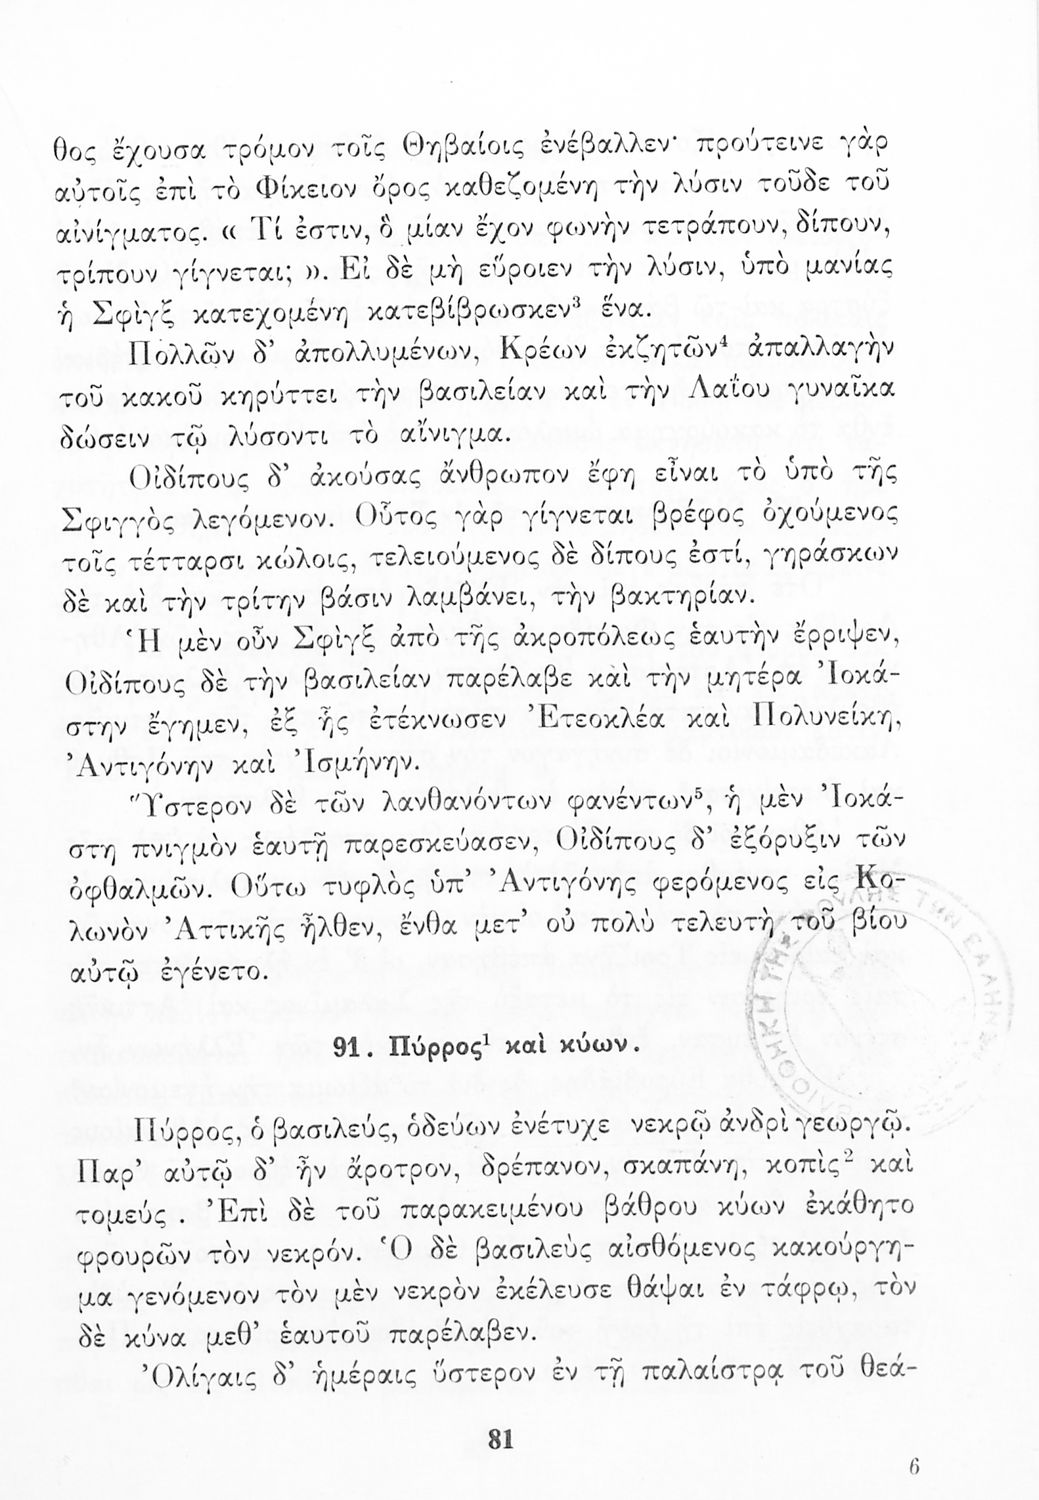 θος ἔχουσα τρόμον τοῖς Θηβαίοις ἐνέβαλλεν· προύτεινε γὰρ
αὐτοῖς ἐπὶ τὸ Φίκειον ὄρος καθεζομένη τὴν λύσιν τοῦδε τοῦ
αἰνίγματος. « Τί ἐστιν, ὃ μίαν ἔχον φωνὴν τετράπουν, δίπουν,
τρίπουν γίγνεται; ». Εἰ δὲ μὴ εὕροιεν τὴν λύσιν, ὑπὸ μανίας
ἡ Σφὶγξ κατεχομένη κατεβίβρωσκεν³ ἕνα.
Πολλῶν δ' ἀπολλυμένων, Κρέων ἐκζητῶν⁴ ἀπαλλαγὴν
τοῦ κακοῦ κηρύττει τὴν βασιλείαν καὶ τὴν Λαΐου γυναῖκα
δώσειν τῷ λύσοντι τὸ αἴνιγμα.
Οἰδίπους δ' ἀκούσας ἄνθρωπον ἔφη εἶναι τὸ ὑπὸ τῆς
Σφιγγὸς λεγόμενον. Οὗτος γὰρ γίγνεται βρέφος ὀχούμενος
τοῖς τέτταρσι κώλοις, τελειούμενος δὲ δίπους ἐστί, γηράσκων
δὲ καὶ τὴν τρίτην βάσιν λαμβάνει, τὴν βακτηρίαν.
Ἡ μὲν οὖν Σφὶγξ ἀπὸ τῆς ἀκροπόλεως ἑαυτὴν ἔρριψεν,
Οἰδίπους δὲ τὴν βασιλείαν παρέλαβε καὶ τὴν μητέρα Ἰοκά-
στην ἔγημεν, ἐξ ἧς ἐτέκνωσεν Ἐτεοκλέα καὶ Πολυνείκη,
Ἀντιγόνην καὶ Ἰσμήνην.
Ὕστερον δὲ τῶν λανθανόντων φανέντων⁵, ἡ μὲν Ἰοκά-
στη πνιγμὸν ἑαυτῇ παρεσκεύασεν, Οἰδίπους δ' ἐξόρυξιν τῶν
ὀφθαλμῶν. Οὕτω τυφλὸς ὑπ' Ἀντιγόνης φερόμενος εἰς Κο-
λωνὸν Ἀττικῆς ἦλθεν, ἔνθα μετ' οὐ πολὺ τελευτὴ τοῦ βίου
αὐτῷ ἐγένετο.
91. Πύρρος¹ καὶ κύων.
Πύρρος, ὁ βασιλεύς, ὁδεύων ἐνέτυχε νεκρῷ ἀνδρὶ γεωργῷ.
Παρ' αὐτῷ δ' ἦν ἄροτρον, δρέπανον, σκαπάνη, κοπὶς² καὶ
τομεύς . Ἐπὶ δὲ τοῦ παρακειμένου βάθρου κύων ἐκάθητο
φρουρῶν τὸν νεκρόν. Ὁ δὲ βασιλεὺς αἰσθόμενος κακούργη-
μα γενόμενον τὸν μὲν νεκρὸν ἐκέλευσε θάψαι ἐν τάφρῳ, τὸν
δὲ κύνα μεθ' ἑαυτοῦ παρέλαβεν.
Ὀλίγαις δ' ἡμέραις ὕστερον ἐν τῇ παλαίστρᾳ τοῦ θεά-
81
6